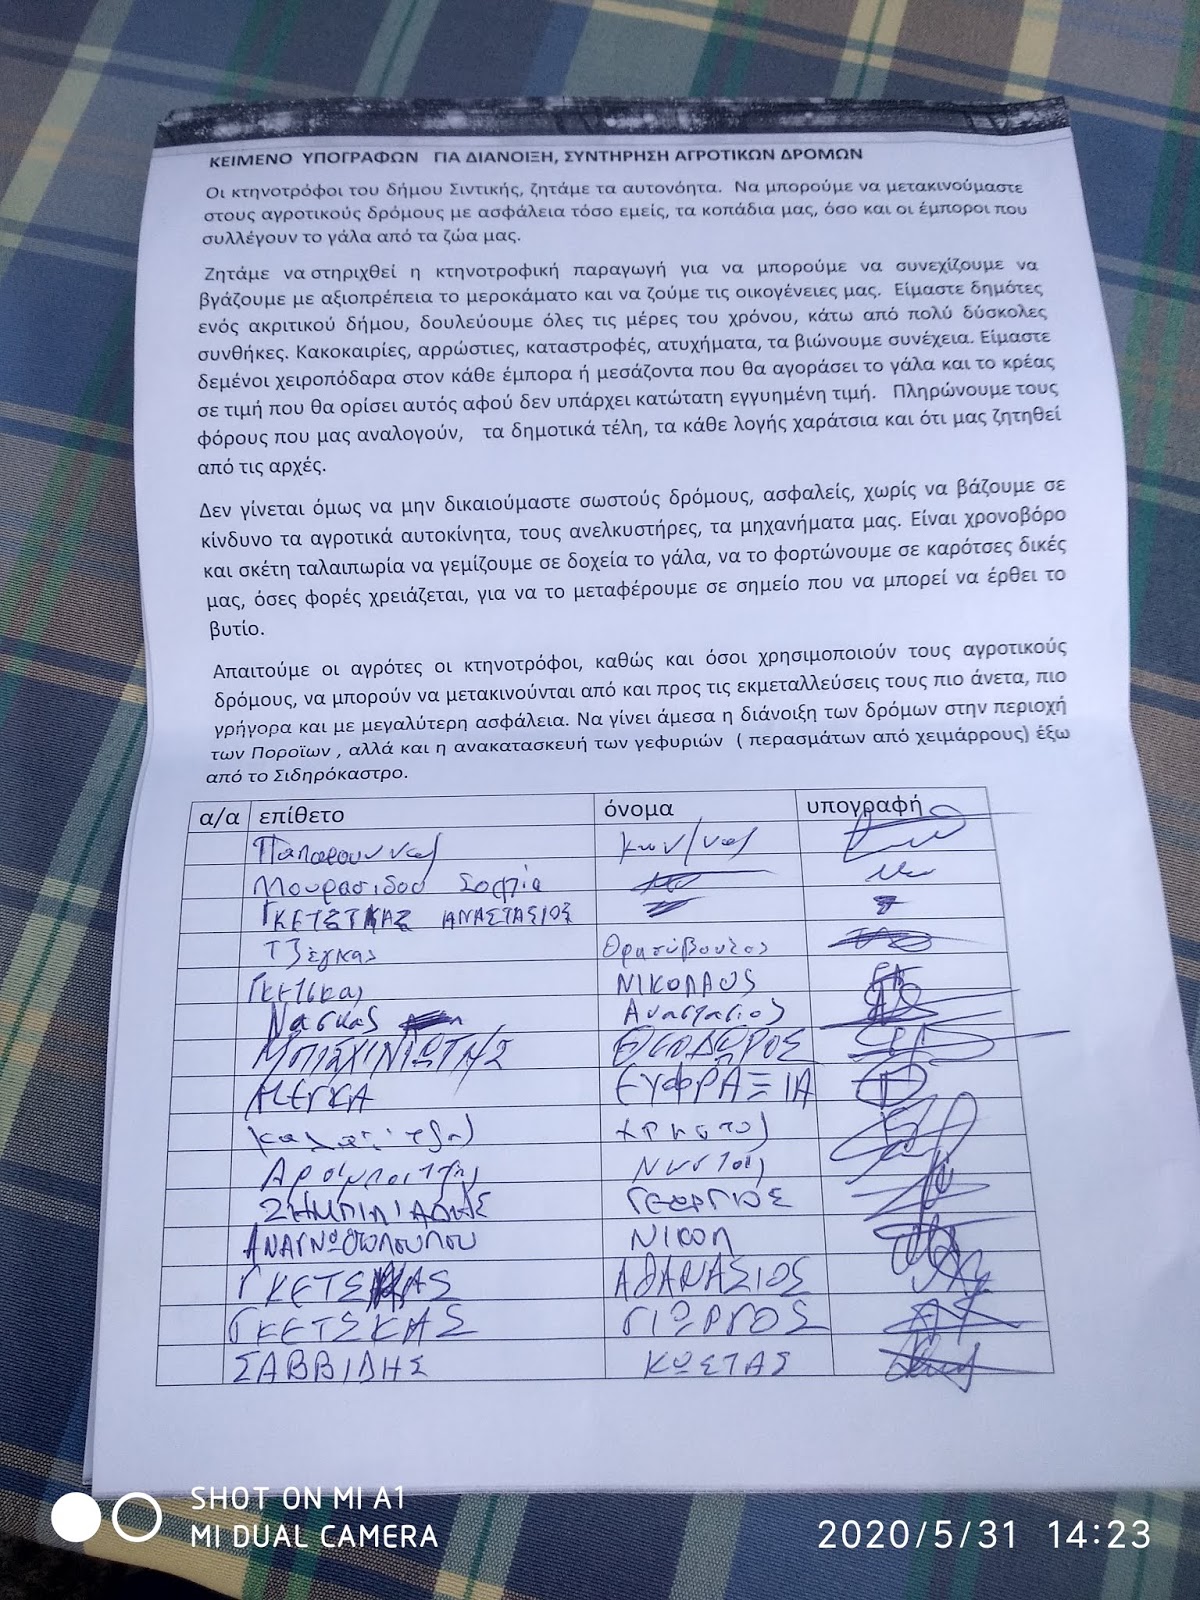 ΚΕΙΜΕΝΟ ΥΠΟΓΡΑΦΩΝ ΓΙΑ ΔΙΑΝΟΙΞΗ, ΣΥΝΤΗΡΗΣΗ ΑΓΡΟΤΙΚΩΝ ΔΡΟΜΩΝ
Οι κτηνοτρόφοι του δήμου Σιντικής, ζητάμε τα αυτονόητα. Να μπορούμε να μετακινούμαστε
στους αγροτικούς δρόμους με ασφάλεια τόσο εμείς, τα κοπάδια μας, όσο και οι έμποροι που
συλλέγουν το γάλα από τα ζώα μας.
Ζητάμε να στηριχθεί η κτηνοτροφική παραγωγή για να μπορούμε να συνεχίζουμε να
βγάζουμε με αξιοπρέπεια το μεροκάματο και να ζούμε τις οικογένειες μας. Είμαστε δημότες
ενός ακριτικού δήμου, δουλεύουμε όλες τις μέρες του χρόνου, κάτω από πολύ δύσκολες
συνθήκες. Κακοκαιρίες, αρρώστιες, καταστροφές, ατυχήματα, τα βιώνουμε συνέχεια. Είμαστε
δεμένοι χειροπόδαρα στον κάθε έμπορα ή μεσάζοντα που θα αγοράσει το γάλα και το κρέας
σε τιμή που θα ορίσει αυτός αφού δεν υπάρχει κατώτατη εγγυημένη τιμή. Πληρώνουμε τους
φόρους που μας αναλογούν, τα δημοτικά τέλη, τα κάθε λογής χαράτσια και ότι μας ζητηθεί
από τις αρχές.
Δεν γίνεται όμως να μην δικαιούμαστε σωστούς δρόμους, ασφαλείς, χωρίς να βάζουμε σε
κίνδυνο τα αγροτικά αυτοκίνητα, τους ανελκυστήρες, τα μηχανήματα μας. Είναι χρονοβόρο
και σκέτη ταλαιπωρία να γεμίζουμε σε δοχεία το γάλα, να το φορτώνουμε σε καρότσες δικές
μας, όσες φορές χρειάζεται, για να το μεταφέρουμε σε σημείο που να μπορεί να έρθει το
βυτίο.
Απαιτούμε οι αγρότες οι κτηνοτρόφοι, καθώς και όσοι χρησιμοποιούν τους αγροτικούς
δρόμους, να μπορούν να μετακινούνται από και προς τις εκμεταλλεύσεις τους πιο άνετα, πιο
γρήγορα και με μεγαλύτερη ασφάλεια. Να γίνει άμεσα η διάνοιξη των δρόμων στην περιοχή
των Ποροΐων , αλλά και η ανακατασκευή των γεφυριών ( περασμάτων από χειμάρρους) έξω
από το Σιδηρόκαστρο.
α/α επίθετο όνομα υπογραφή
Κων/νος
Μουρασίδου Σοφία
ΓΚΕΤΣΚΑΣ ΑΝΑΣΤΑΣΙΟΣ
Τζέγκας Θρασύβουλος
Γκετσκας ΝΙΚΟΛΑΟΣ
Νάσκας Αναστάσιος
ΘΕΟΔΩΡΟΣ
ΜΕΓΚΑ ΕΥΦΡΑΞΙΑ
Χρήστος
ΓΕΩΡΓΙΟΣ
ΑΝΑΓΝΩΣΟΠΟΥΛΟΥ ΝΙΚΟΛ
ΓΚΕΤΣΚΑΣ ΑΘΑΝΑΣΙΟΣ
ΓΚΕΤΣΚΑΣ ΓΙΩΡΓΟΣ
ΣΑΒΒΙΔΗΣ ΚΩΣΤΑΣ
SHOT ON MI A1
MI DUAL CAMERA
2020/5/31 14:23